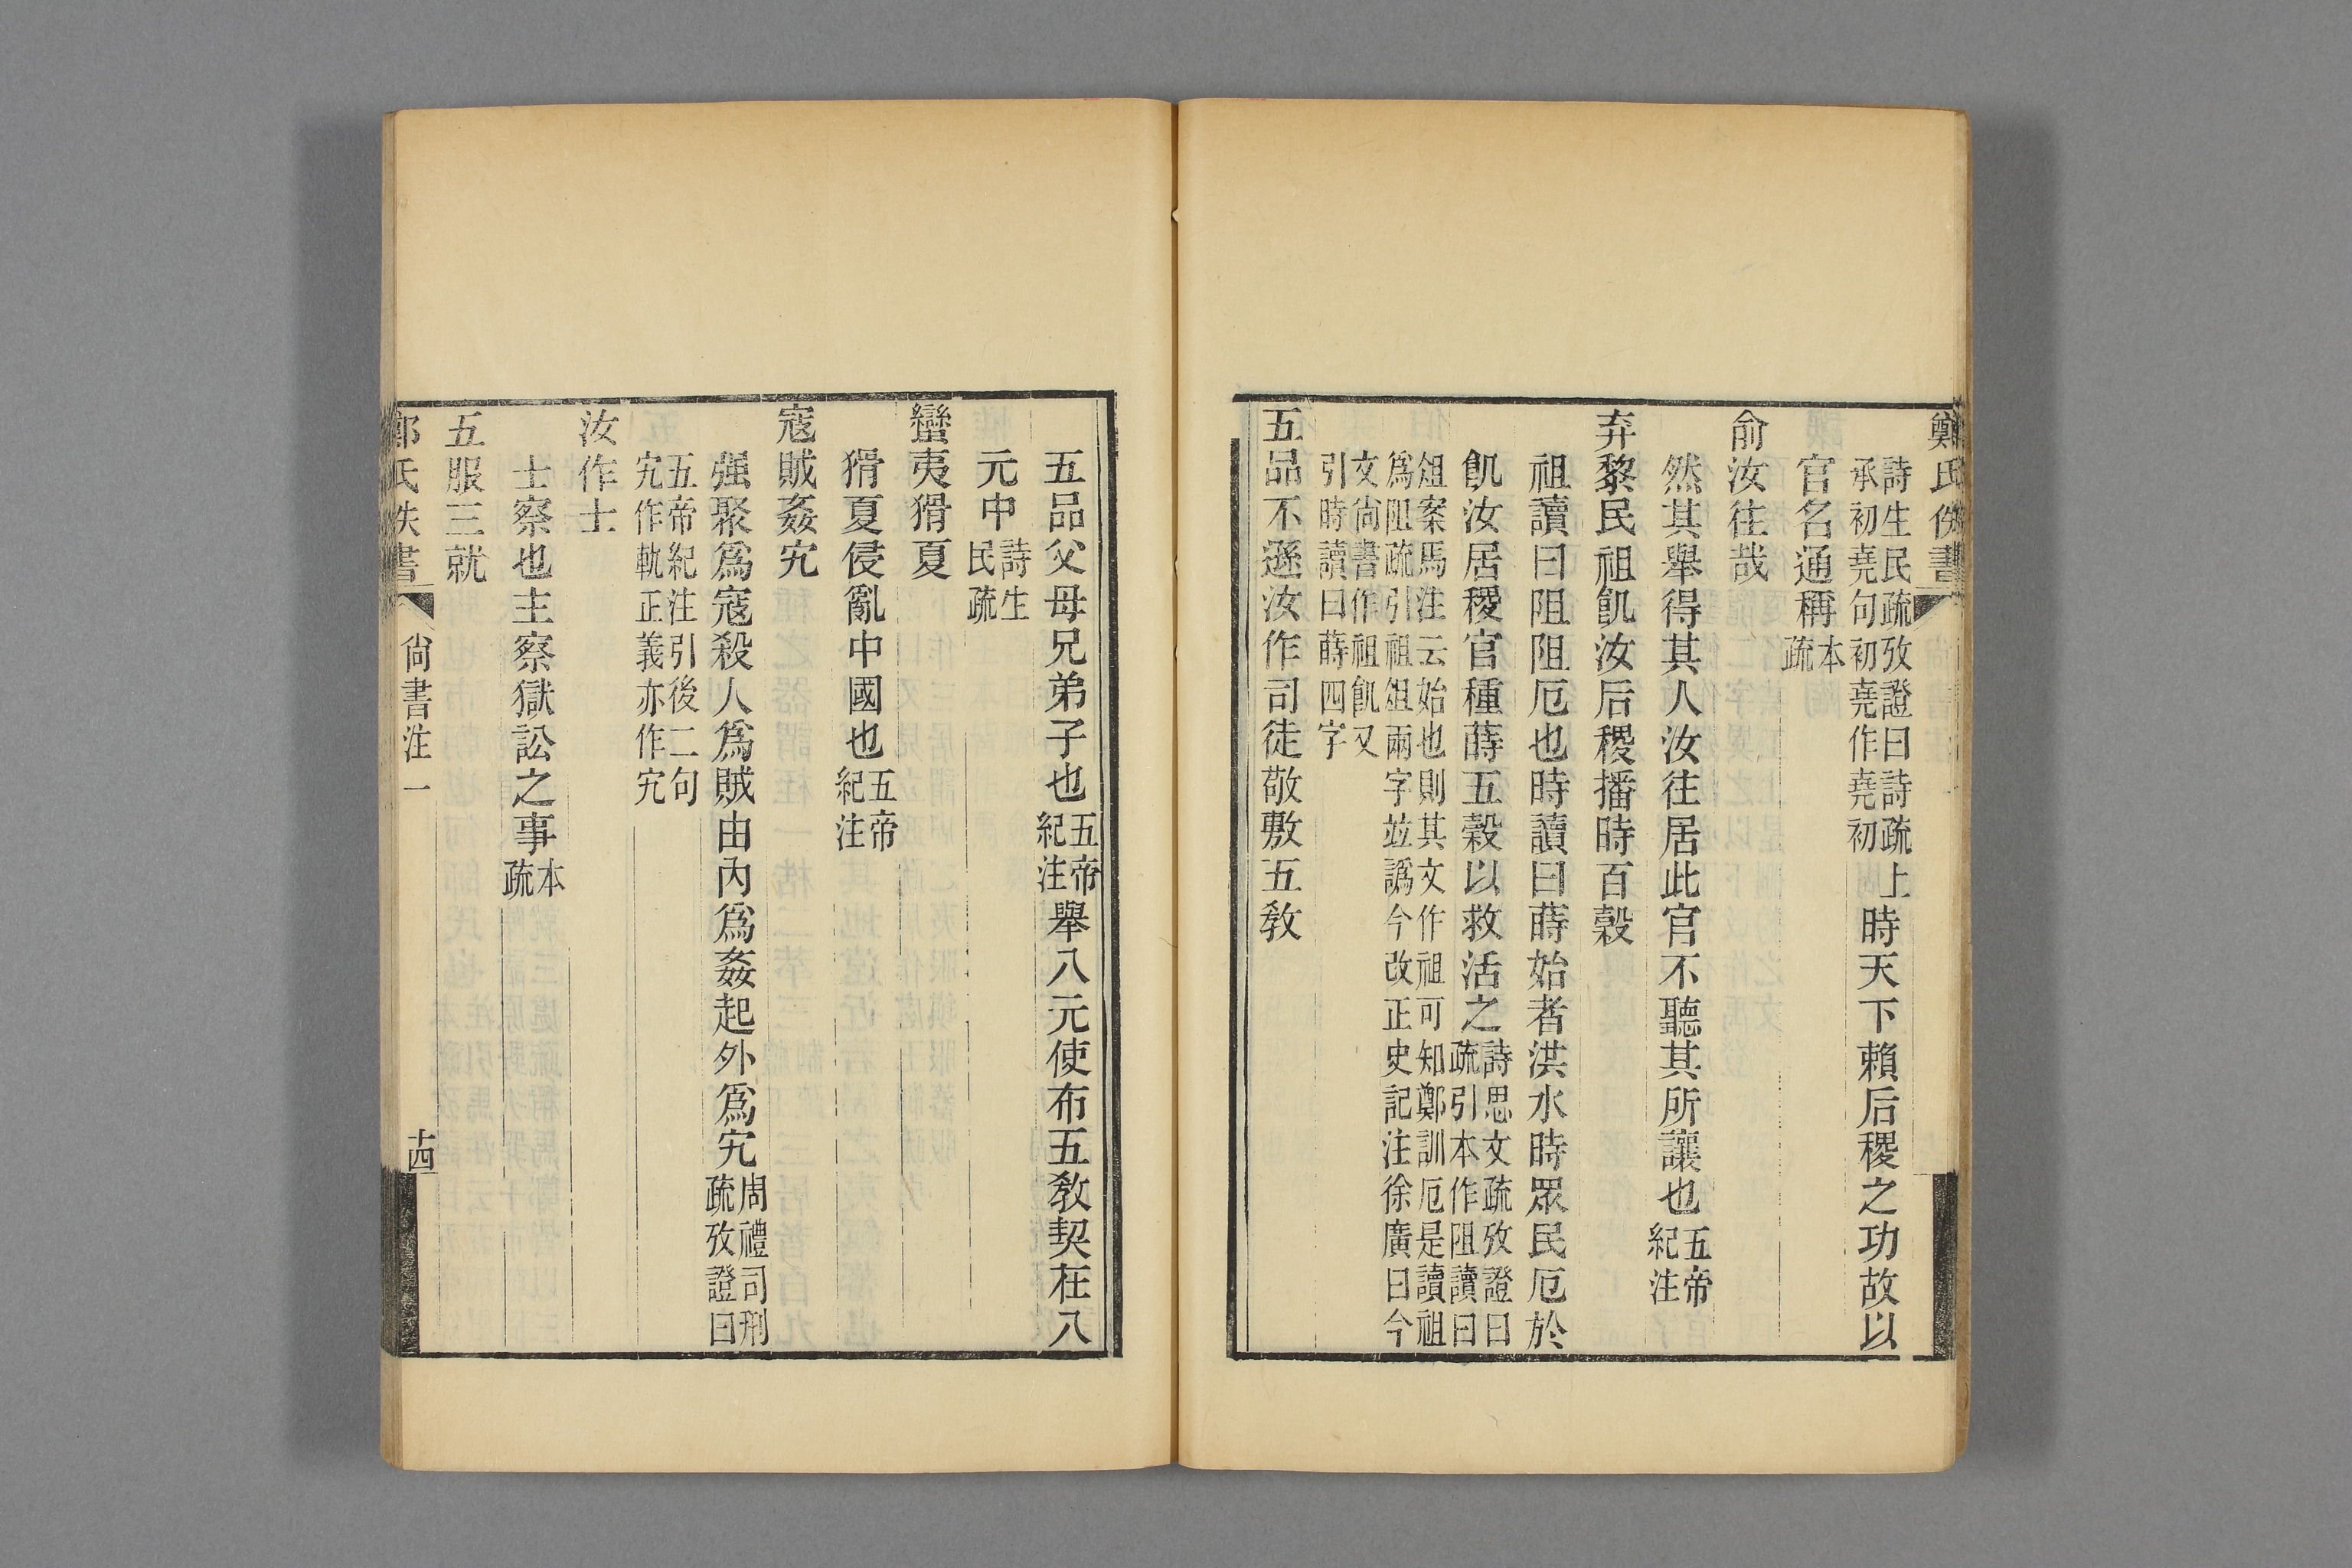 鄭氏佚書
詩生民疏攷證曰詩疏上承初堯句初堯作堯初時天下賴后稷之功故以
官名通稱本疏
俞汝往哉
然其舉得其人汝往居此官不聽其所讓也五帝紀注
弃黎民祖飢汝后稷播時百穀
祖讀曰阻阻厄也時讀曰蒔始者洪水時眾民厄於
飢汝居稷官種蒔五穀以救活之詩思文疏攷證曰疏引本作阻讀曰
俎案馬注云始也則其文作祖可知鄭訓厄是讀祖爲阻疏引祖俎兩字竝譌今改正史記注徐廣曰今
文尚書作祖飢又引時讀曰蒔四字
五品不遜汝作司徒敬敷五敎
五品父母兄弟子也五帝紀注舉八元使布五敎契在八
元中詩生民疏
蠻夷猾夏
猾夏侵亂中國也五帝紀注
寇賊姦宄
强聚爲寇殺人爲賊由內爲姦起外爲宄周禮司刑疏攷證曰
五帝紀注引後二句宄作軌正義亦作宄
汝作士
士察也主察獄訟之事本疏
五服三就
鄭氏佚書 尚書注一 十四